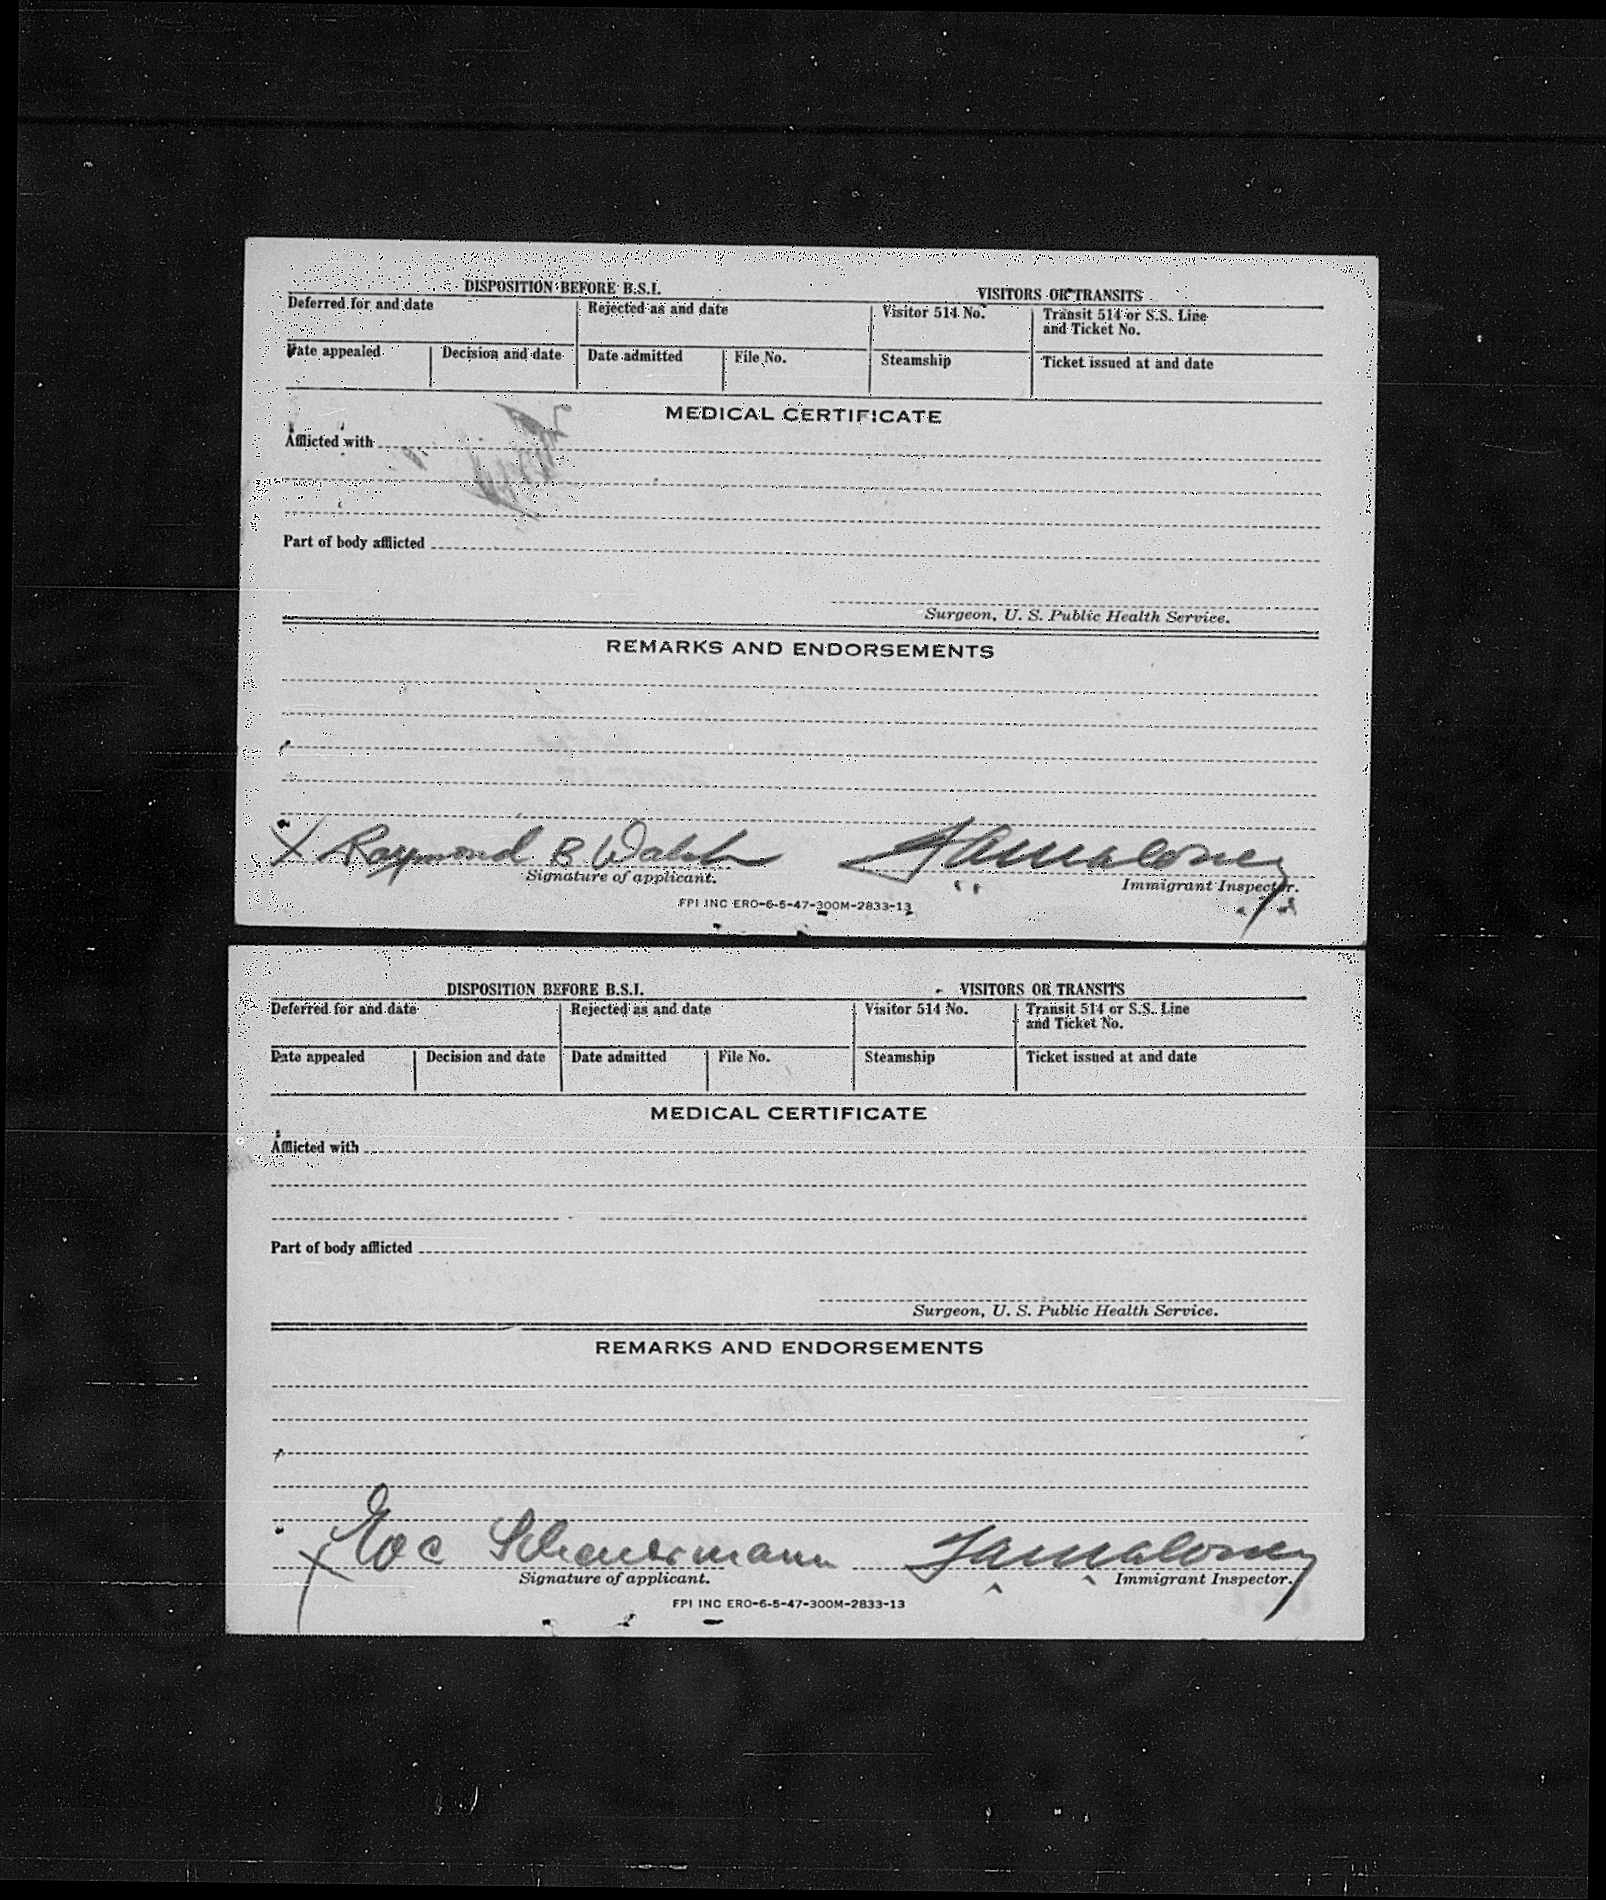 DISPOSITION BEFORE B.S.I. VISITORS OR TRANSITS
Deferred for and date Rejected as and date Visitor 514 No. Transit 514 or S.S. Line
and Ticket No.
Date appealed Decision and date Date admitted File No. Steamship Ticket issued at and date
MEDICAL CERTIFICATE
Afflicted with
Part of body afflicted
Surgeon, U. S. Public Health Service.
REMARKS AND ENDORSEMENTS
X Raymond B Walsh
Signature of applicant. Immigrant Inspector.
FPI INC ERO-6-5-47-300M-2833-13
DISPOSITION BEFORE B.S.I. VISITORS OR TRANSITS
Deferred for and date Rejected as and date Visitor 514 No. Transit 514 or S.S. Line
and Ticket No.
Date appealed Decision and date Date admitted File No. Steamship Ticket issued at and date
MEDICAL CERTIFICATE
Afflicted with
Part of body afflicted
Surgeon, U. S. Public Health Service.
REMARKS AND ENDORSEMENTS
X Schauermann
Signature of applicant. Immigrant Inspector.
FPI INC ERO-6-5-47-300M-2833-13